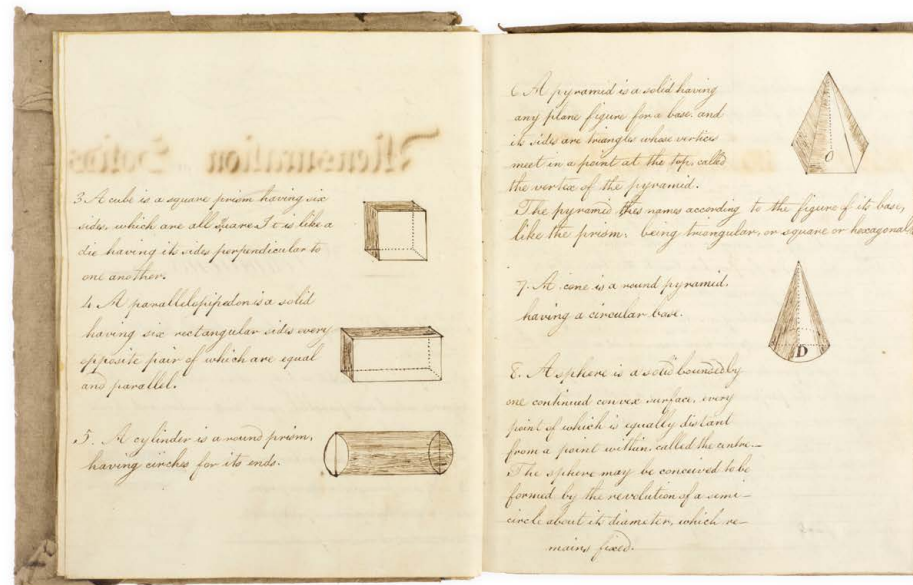 3. A cube is a square prism having six
sides, which are all square. It is like a
die having its sides perpendicular to
one another.
4. A parallelopipedon is a solid
having six rectangular sides every
opposite pair of which are equal
and parallel.
5. A cylinder is a round prism,
having circles for its ends.
6. A pyramid is a solid having
any plane figure for a base. and
its sides are triangles whose vertices
meet in a point at the top, called
the vertex of the pyramid.
The pyramid this names according to the figure of its base,
like the prism. being triangular, or square or hexagonal,
O
7. A cone is a round pyramid.
having a circular base.
D
8. A sphere is a solid bounded by
one continued convex surface, every
point of which is equally distant
from a point within, called the centre.—
The sphere may be conceived to be
formed by the revolution of a semi-
circle about its diameter, which re-
mains fixed.